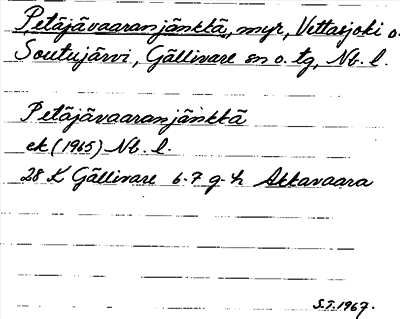 Petäjävaaranjänkkä, myr, Vettasjoki o.
Soutujärvi, Gällivare sn o. tg, Nb. l.
Petäjävaaranjänkkä
ek (1965) Nb. l.
28 K Gällivare 6-7 g-h Akkavaara
S.S. 1967.